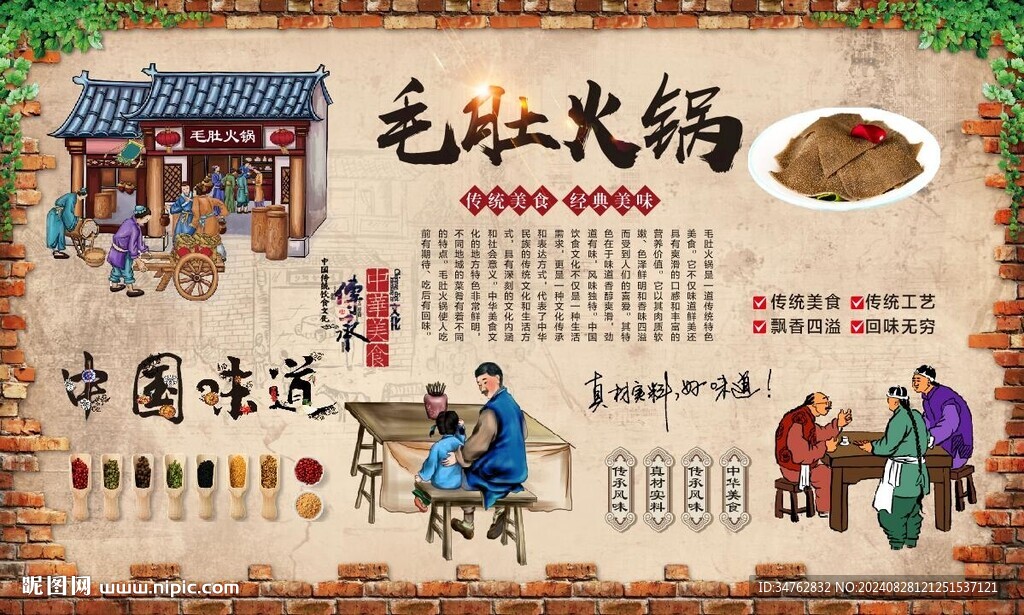 毛肚火锅
毛肚火锅
传统美食 经典美味
毛肚火锅是一道传统特色
美食。它不仅味道鲜美还
具有爽滑的口感和丰富的
营养价值。它以其肉质软
嫩、色泽鲜明和香味四溢
而受到人们的喜爱。其特
色在于味道香醇爽滑，劲
道有味，风味独特。中国
饮食文化不仅是一种生活
需求，更是一种文化传承
和表达方式，代表了中华
民族的传统文化和生活方
式，具有深刻的文化内涵
和社会意义。中华美食文
化的地方特色非常鲜明，
不同地域的菜肴有着不同
的特点。毛肚火锅使人吃
前有期待、吃后有回味。
中华美食
文化
传承
中国传统饮食文化
传统美食 传统工艺
飘香四溢 回味无穷
中国味道
真材实料,好味道!
传承风味
真材实料
传承风味
中华美食
昵图网 www.nipic.com
ID:34762832 NO:20240828121251537121